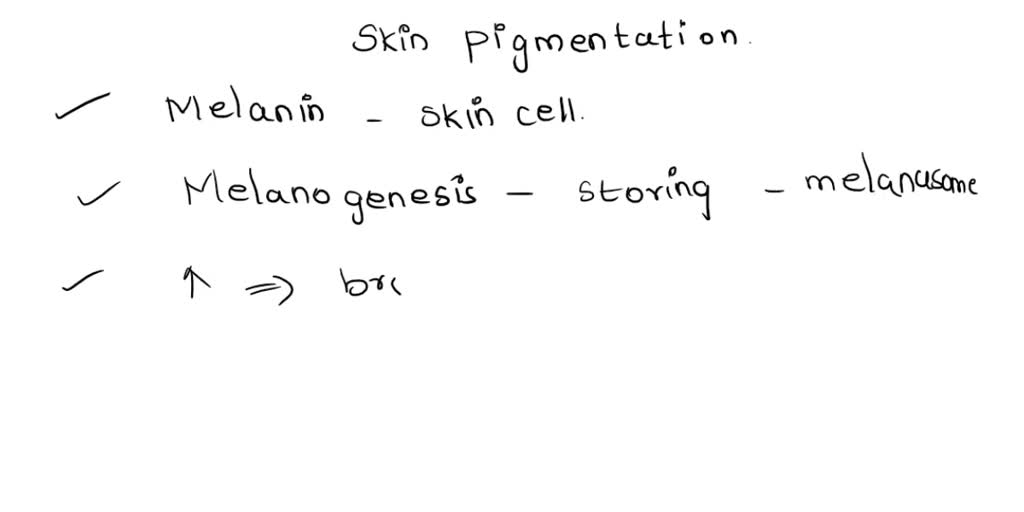 Skin pigmentation.
Melanin - skin cell.
Melanogenesis - storing - melanusome
↑ ⇒ bro